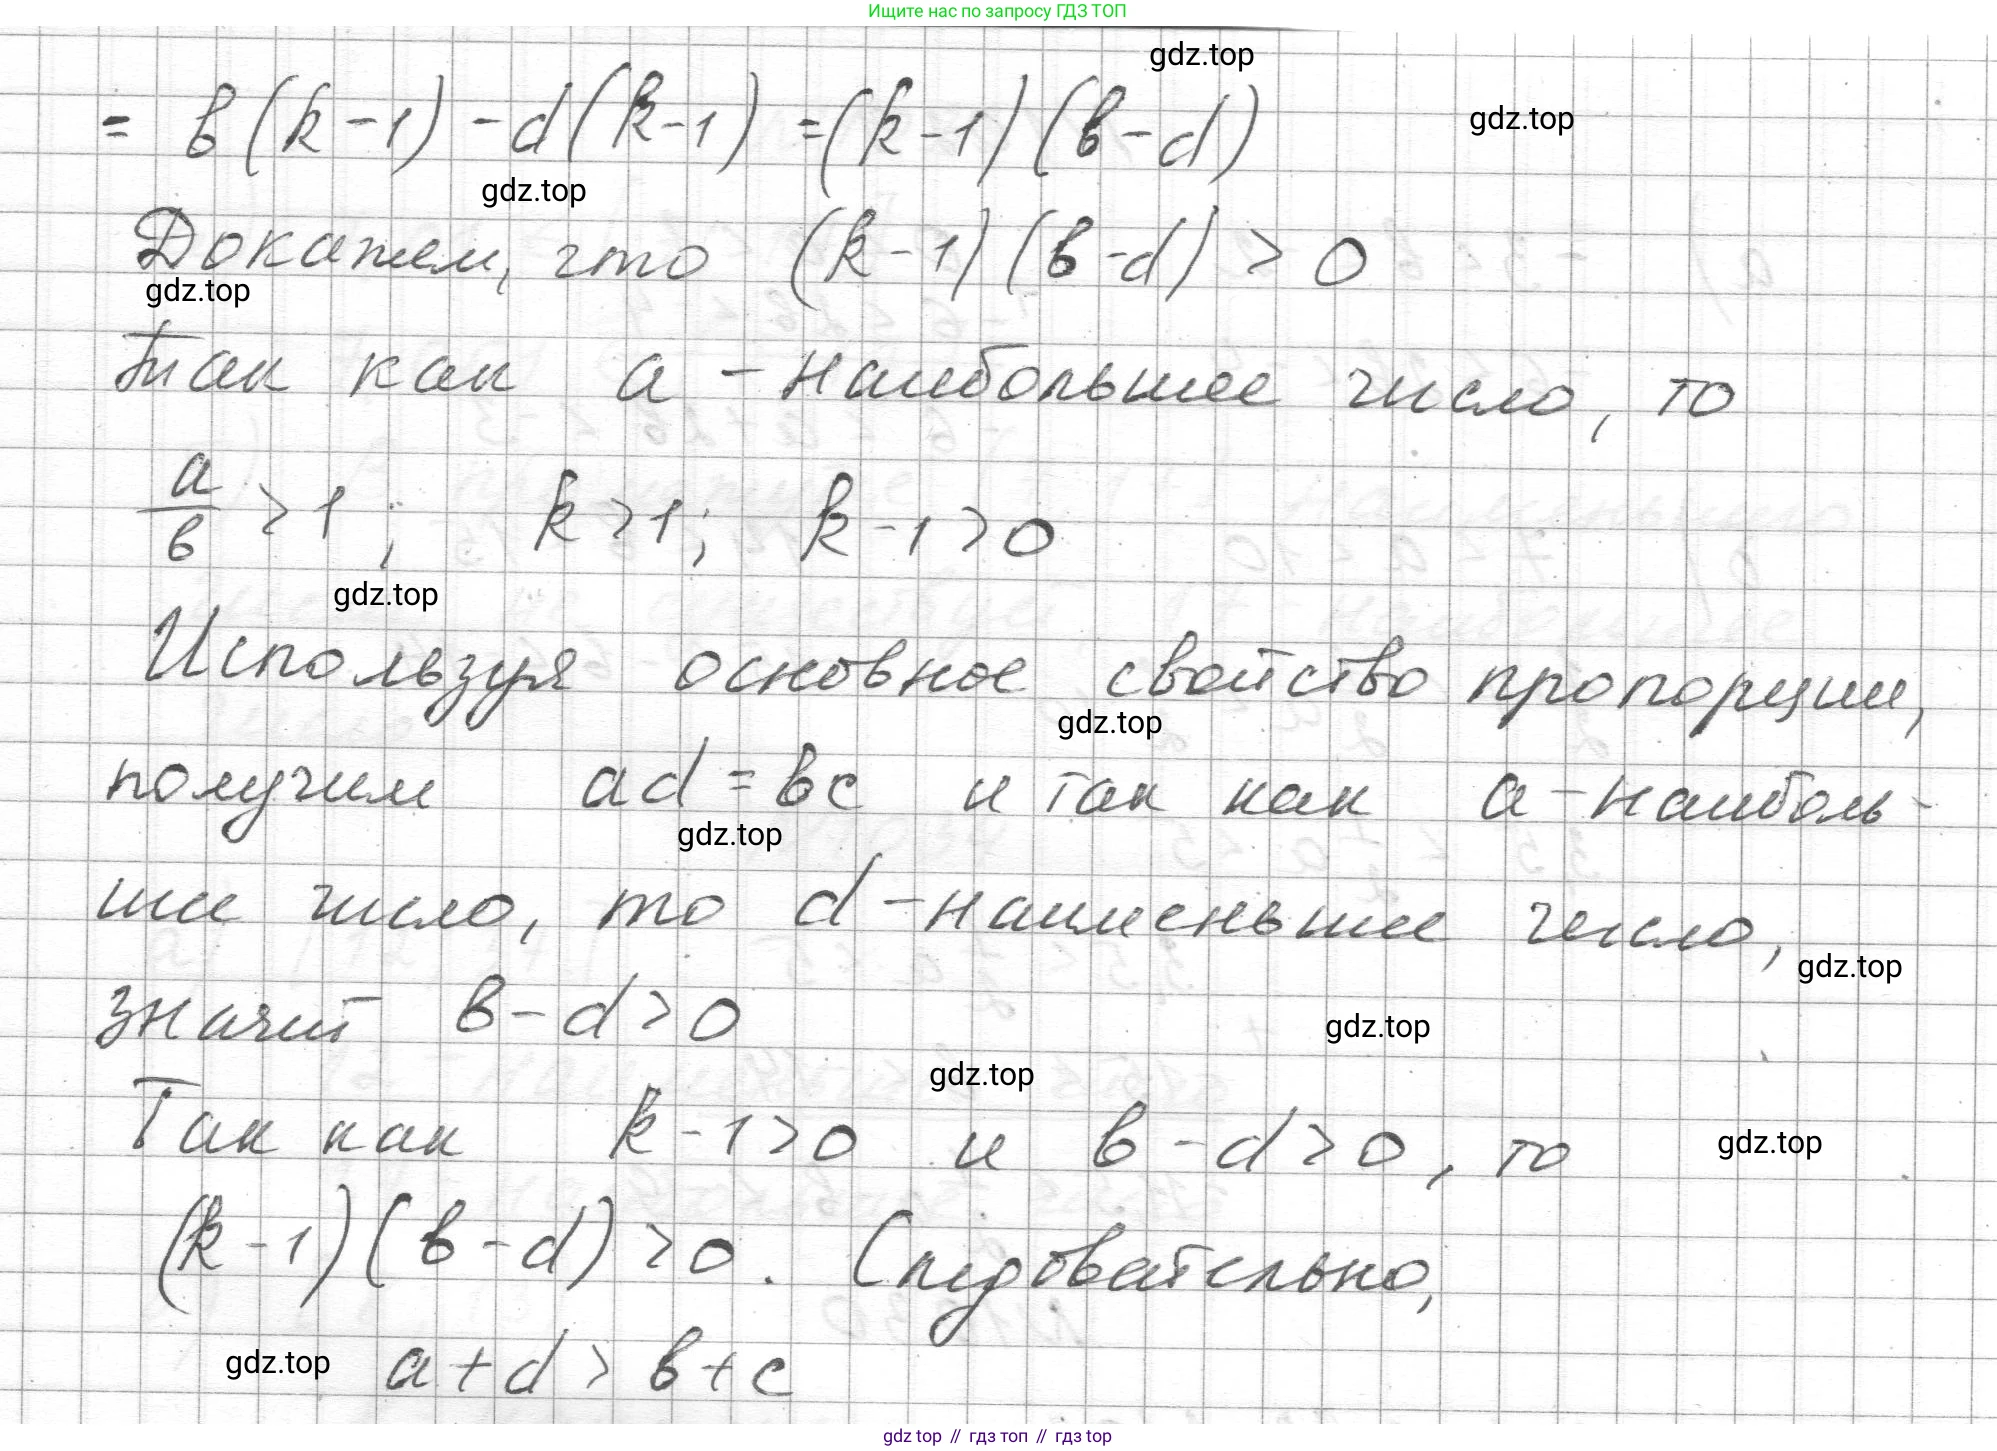 Ищите нас по запросу ГДЗ ТОП
gdz.top
= в(k-1) - d(k-1) = (k-1)(в-d)
gdz.top
gdz.top
Докажем, что (k-1)(в-d) > 0
gdz.top
Так как a - наибольшее число, то
a/в > 1; k > 1; k - 1 > 0
gdz.top
Используя основное свойство пропорции,
gdz.top
получим ad = вc и так как a - наиболь-
gdz.top
шее число, то d - наименьшее число,
gdz.top
значит в - d > 0
gdz.top
gdz.top
Так как k - 1 > 0 и в - d > 0, то
gdz.top
(k-1)(в-d) > 0. Следовательно,
gdz.top
a + d > в + c
gdz.top // гдз топ // гдз.top